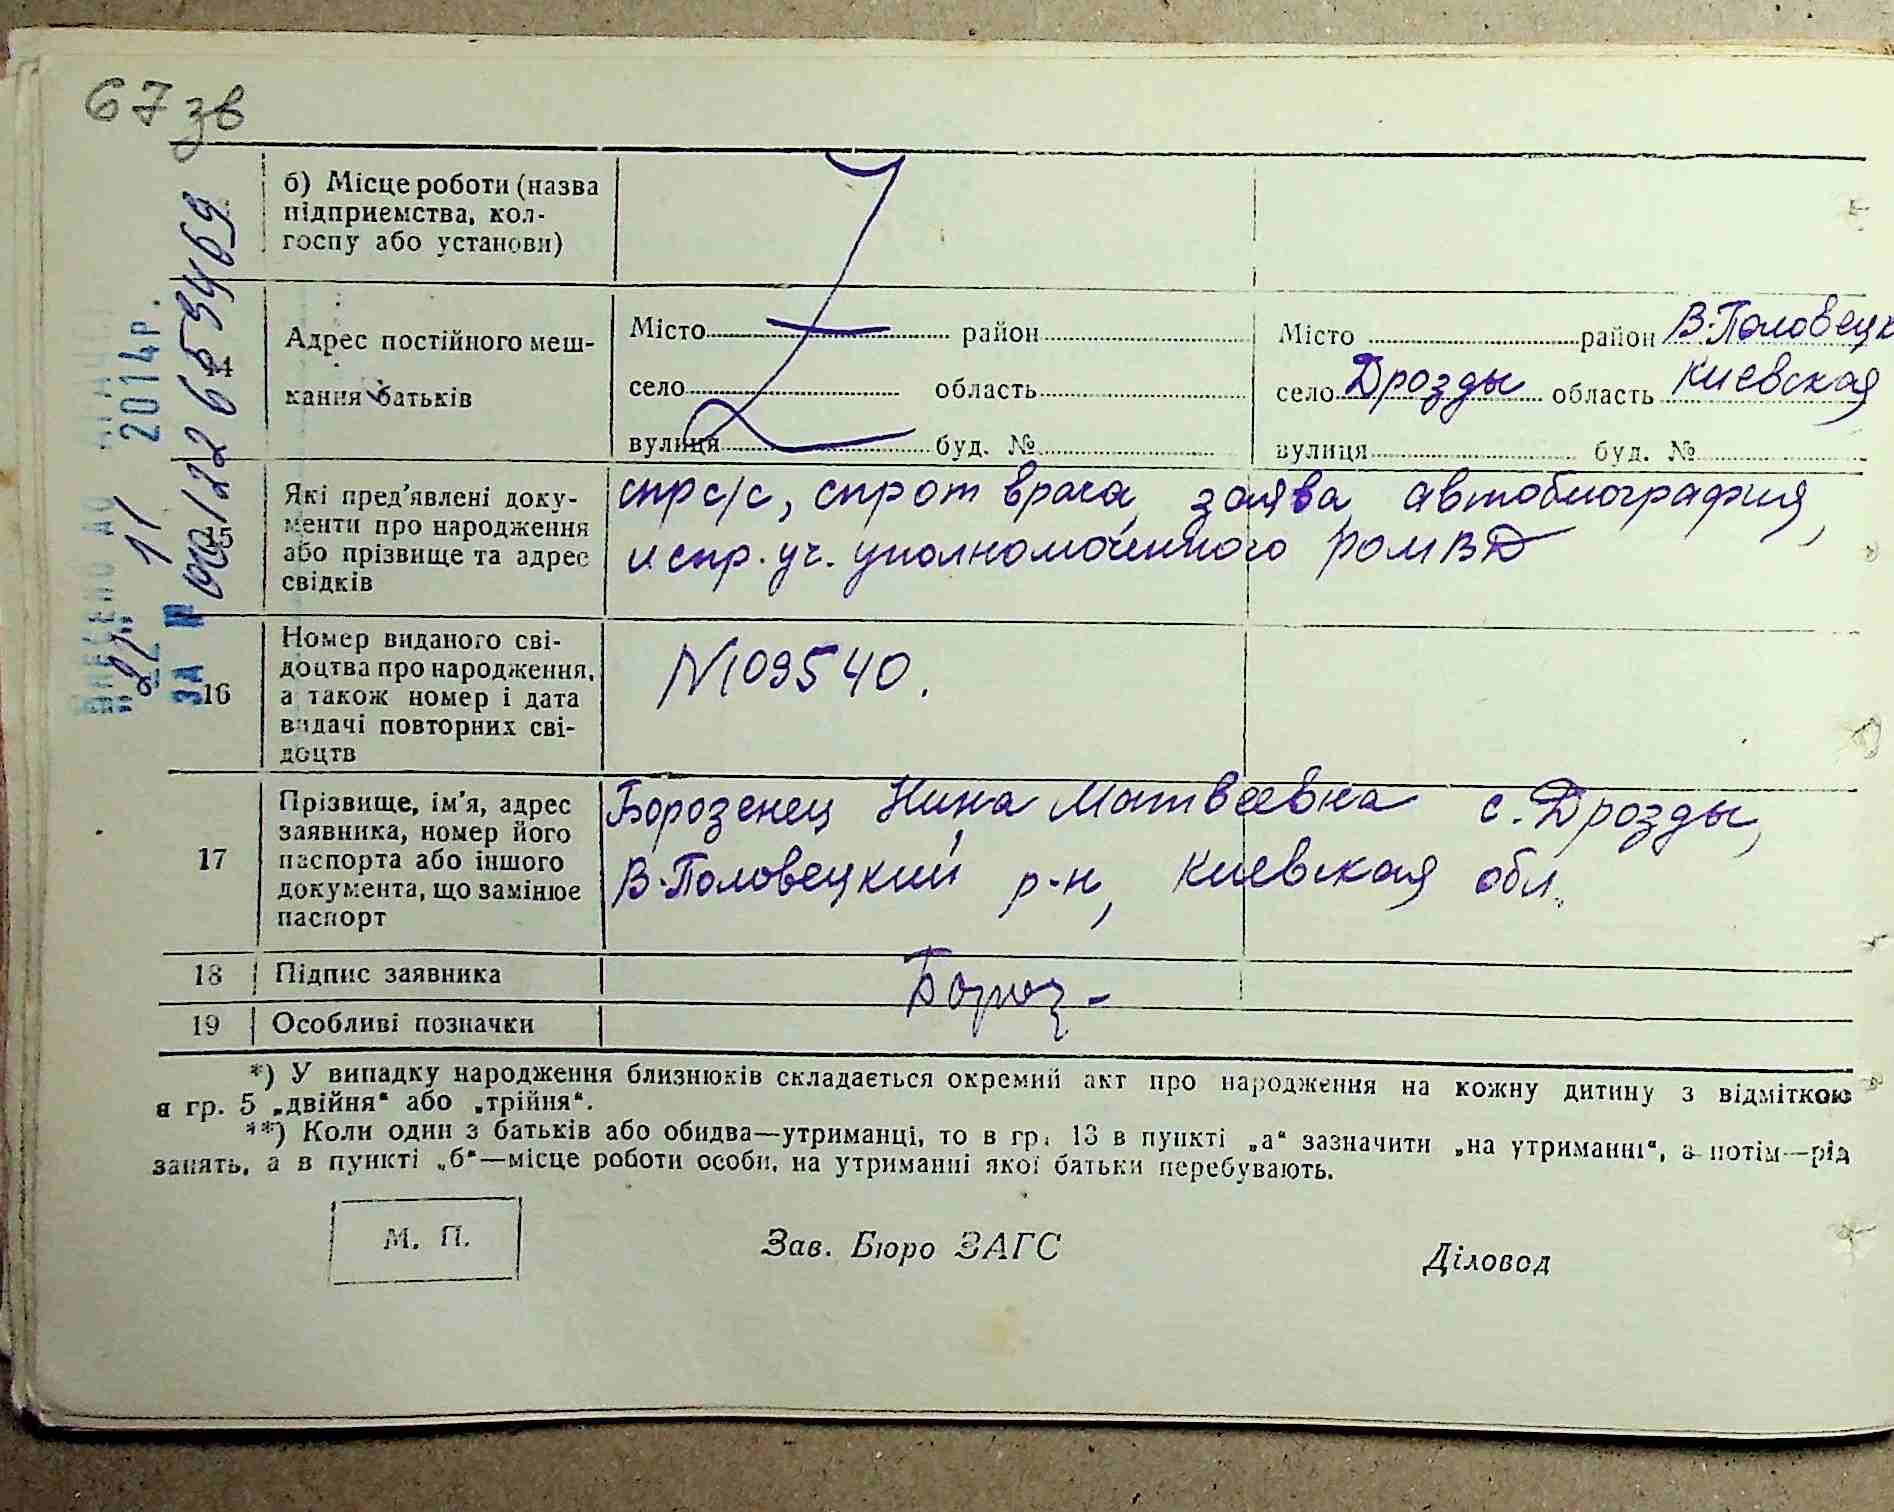 67 зв
б) Місце роботи (назва
підприемства, кол-
госпу або установи)
14
Адрес постійного меш-
кання батьків
Місто район
село область
вулиця буд. №
Місто район В-Половецк
село Дрозды область Киевская
вулиця буд. №
15
Які пред'явлені доку-
менти про народження
або прізвище та адрес
свідків
спр с/с, спр от врача, заява автобиография,
и спр. уч. уполномоченного РОМВД
16
Номер виданого сві-
доцтва про народження,
а також номер і дата
видачі повторних сві-
доцтв
N109540.
17
Прізвище, ім'я, адрес
заявника, номер його
паспорта або іншого
документа, що замінює
паспорт
Борозенец Нина Матвеевна с. Дрозды,
В-Половецкий р-н, Киевская обл.
18 Підпис заявника
Бороз-
19 Особливі позначки
*) У випадку народження близнюків складається окремий акт про народження на кожну дитину з відміткою
в гр. 5 „двійня“ або „трійня“.
**) Коли один з батьків або обидва—утриманці, то в гр. 13 в пункті „а“ зазначити „на утриманні“, а потім—рід
занять, а в пункті „б“—місце роботи особи, на утриманні якої батьки перебувають.
М. П.
Зав. Бюро ЗАГС
Діловод
ВНЕСЕНО ДО
"21" 11 2014р.
ЗА №